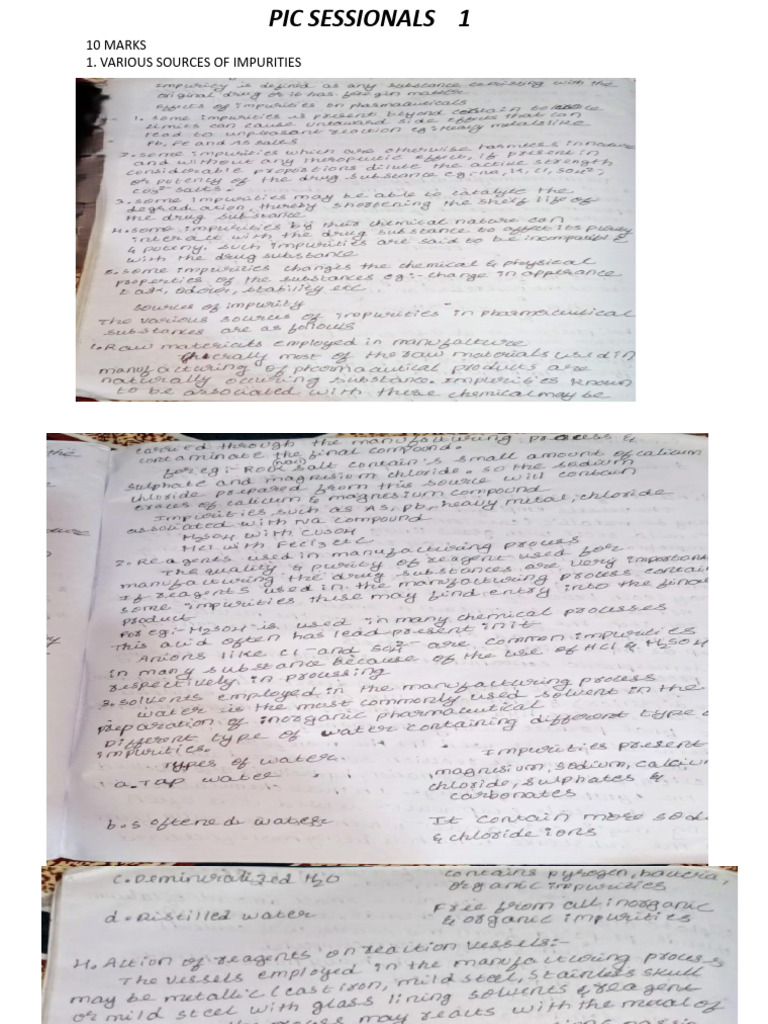 PIC SESSIONALS 1
10 MARKS
1. VARIOUS SOURCES OF IMPURITIES
Impurity is defined as any substance coexisting with the
original drug or it has foregin matter
Effects of impurities on pharmaceuticals
1. Some impurities is present beyond certain
limits can cause untoward side effects that can
lead to unpleasant reaction eg: Heavy metals like
Pb, Fe and As salts
2. Some impurities which are otherwise harmless in nature
and without any therapeutic effect, if present in
considerable propotions dilute the active strength
or potency of the drug substance e.g:-na, K, Cl, SO4²⁻,
CO3²⁻ salts.
3. Some impurities may be able to catalyze the
degradation, thereby shortening the shelf life of
the drug substance
4. Some impurities by their chemical nature can
interact with the drug substance to affect its purity
& poteny. Such impurities are said to be incompatible
with the drug substance
5. Some impurities changes the chemical & physical
properties of the substances eg:- change in apperance
taste, odour, stability etc
Sources of impurity
The various sources of impurities in pharmaceutical
substances are as follows
1. Raw materials employed in manufacture
Generally most of the raw materials used in
manufacturing of pharmaceutical products are
naturally occuring substance. Impurities known
to be associated with these chemical may be
carried through the manufacturing process &
contaminate the final compound.
for eg:- Rock salt contain's small amount of calicum
sulphate and magnisium chloride. so the sodium
chloride prepared from this source will contain
traces of calcium & magnesium compound
Impurities such as As, Pb, heavy metal, chloride
associated with Na compound
H2SO4 with CuSO4
HCl with FeCl3 etc
2. Reagents used in manufacturing process
The quality & purity of reagent used for
manufacturing the drug substances are very
If reagents used in the manufacturing process
some impurities these may find entry into the final
product
For eg:- H2SO4 is used in many chemical processes
This acid often has lead present in it
Anions like Cl⁻ and SO4²⁻ are common impurities
in many substance because of the use of HCl & H2SO4
respectively in proussing
3. Solvents employed in the manufacturing process
water is the most commonly used solvent in the
preparation of inorganic pharmaceutical
Different type of water containing different type
impurities.
Types of water. Impurities present
a. Tap water magnisium, sodium,
chloride, sulphates &
carbonates
b. softened water It contain more
& chloride ions
c. Demineralized H2O contains pyrogen, bacteria,
organic impurities
d. Distilled water Free from all inorganic
& organic impurities
4. Action of reagents on reaction vessels:-
The vessels employed in the manufacturing process
may be metallic (cast iron, mild steel, stainless
or mild steel with glass lining solvents & reagent
may reacts with the metal of